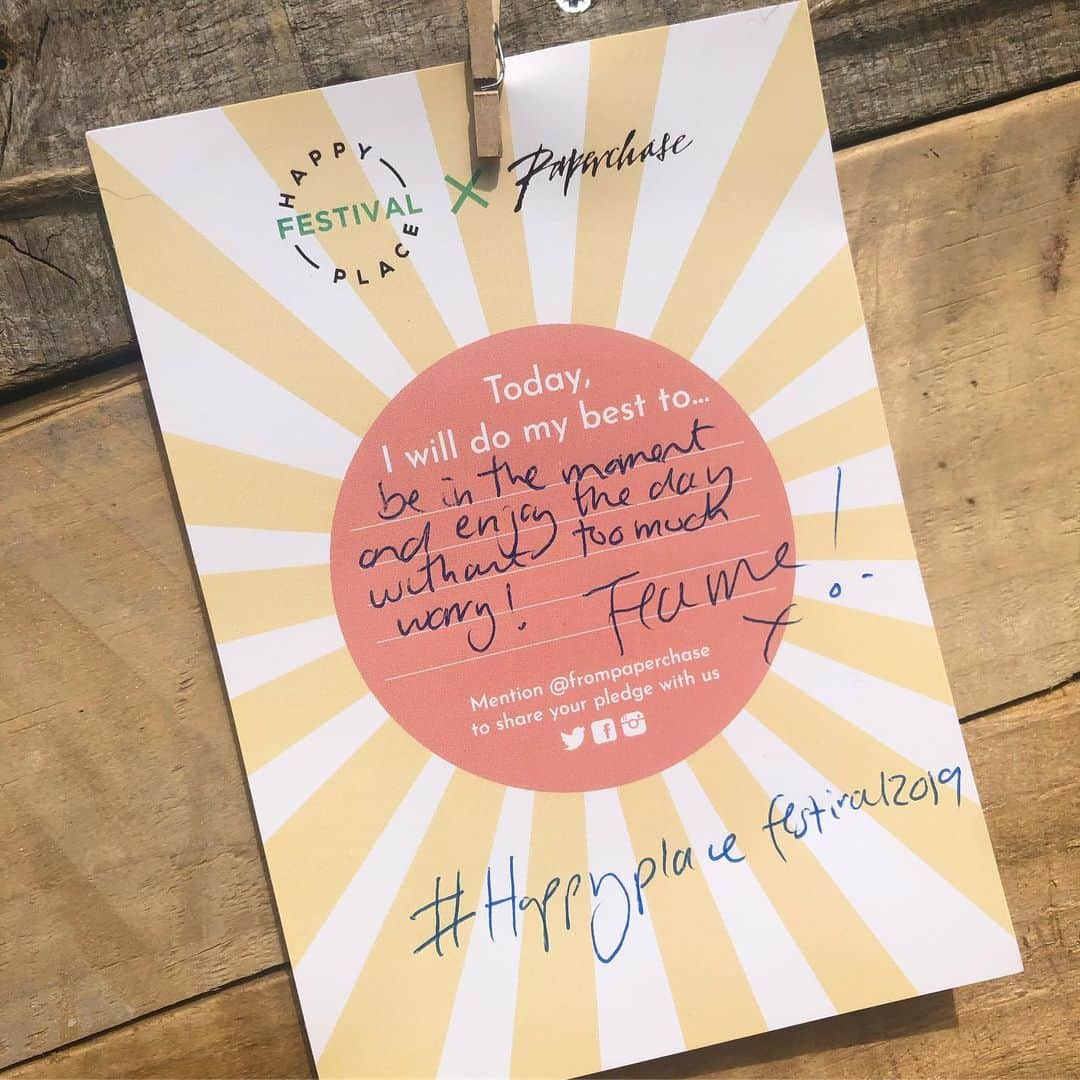 HAPPY
FESTIVAL
PLACE
X Paperchase
Today,
I will do my best to...
be in the moment
and enjoy the day
without too much
worry!
Mention @frompaperchase
to share your pledge with us
#Happyplace festival2019